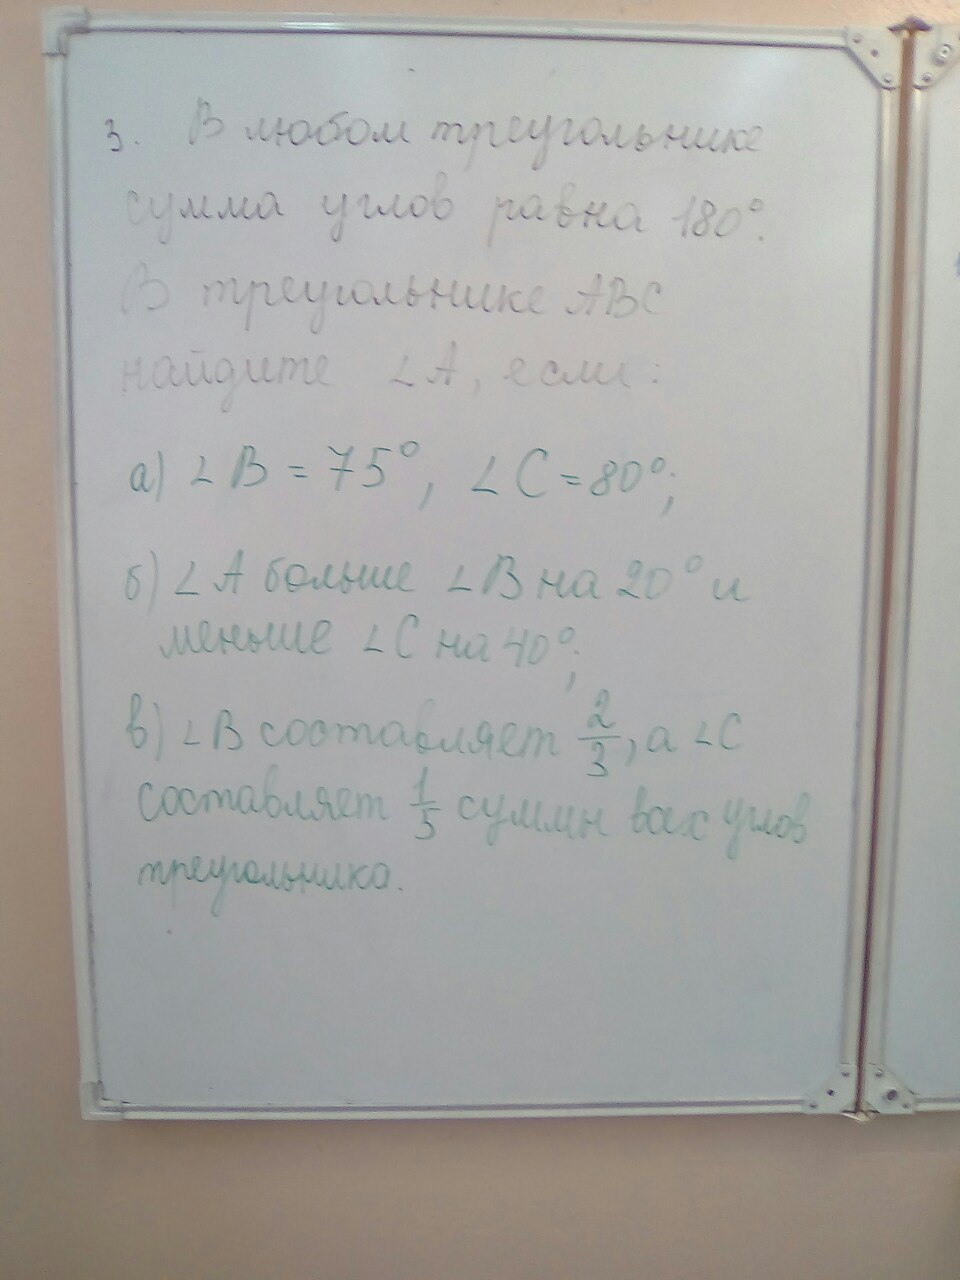 3. В любом треугольнике
сумма углов равна 180°.
В треугольнике ABC
найдите ∠A, если:
а) ∠B = 75°, ∠C = 80°;
б) ∠A больше ∠B на 20° и
меньше ∠C на 40°;
в) ∠B составляет 2/3, а ∠C
составляет 1/5 суммы всех углов
треугольника.